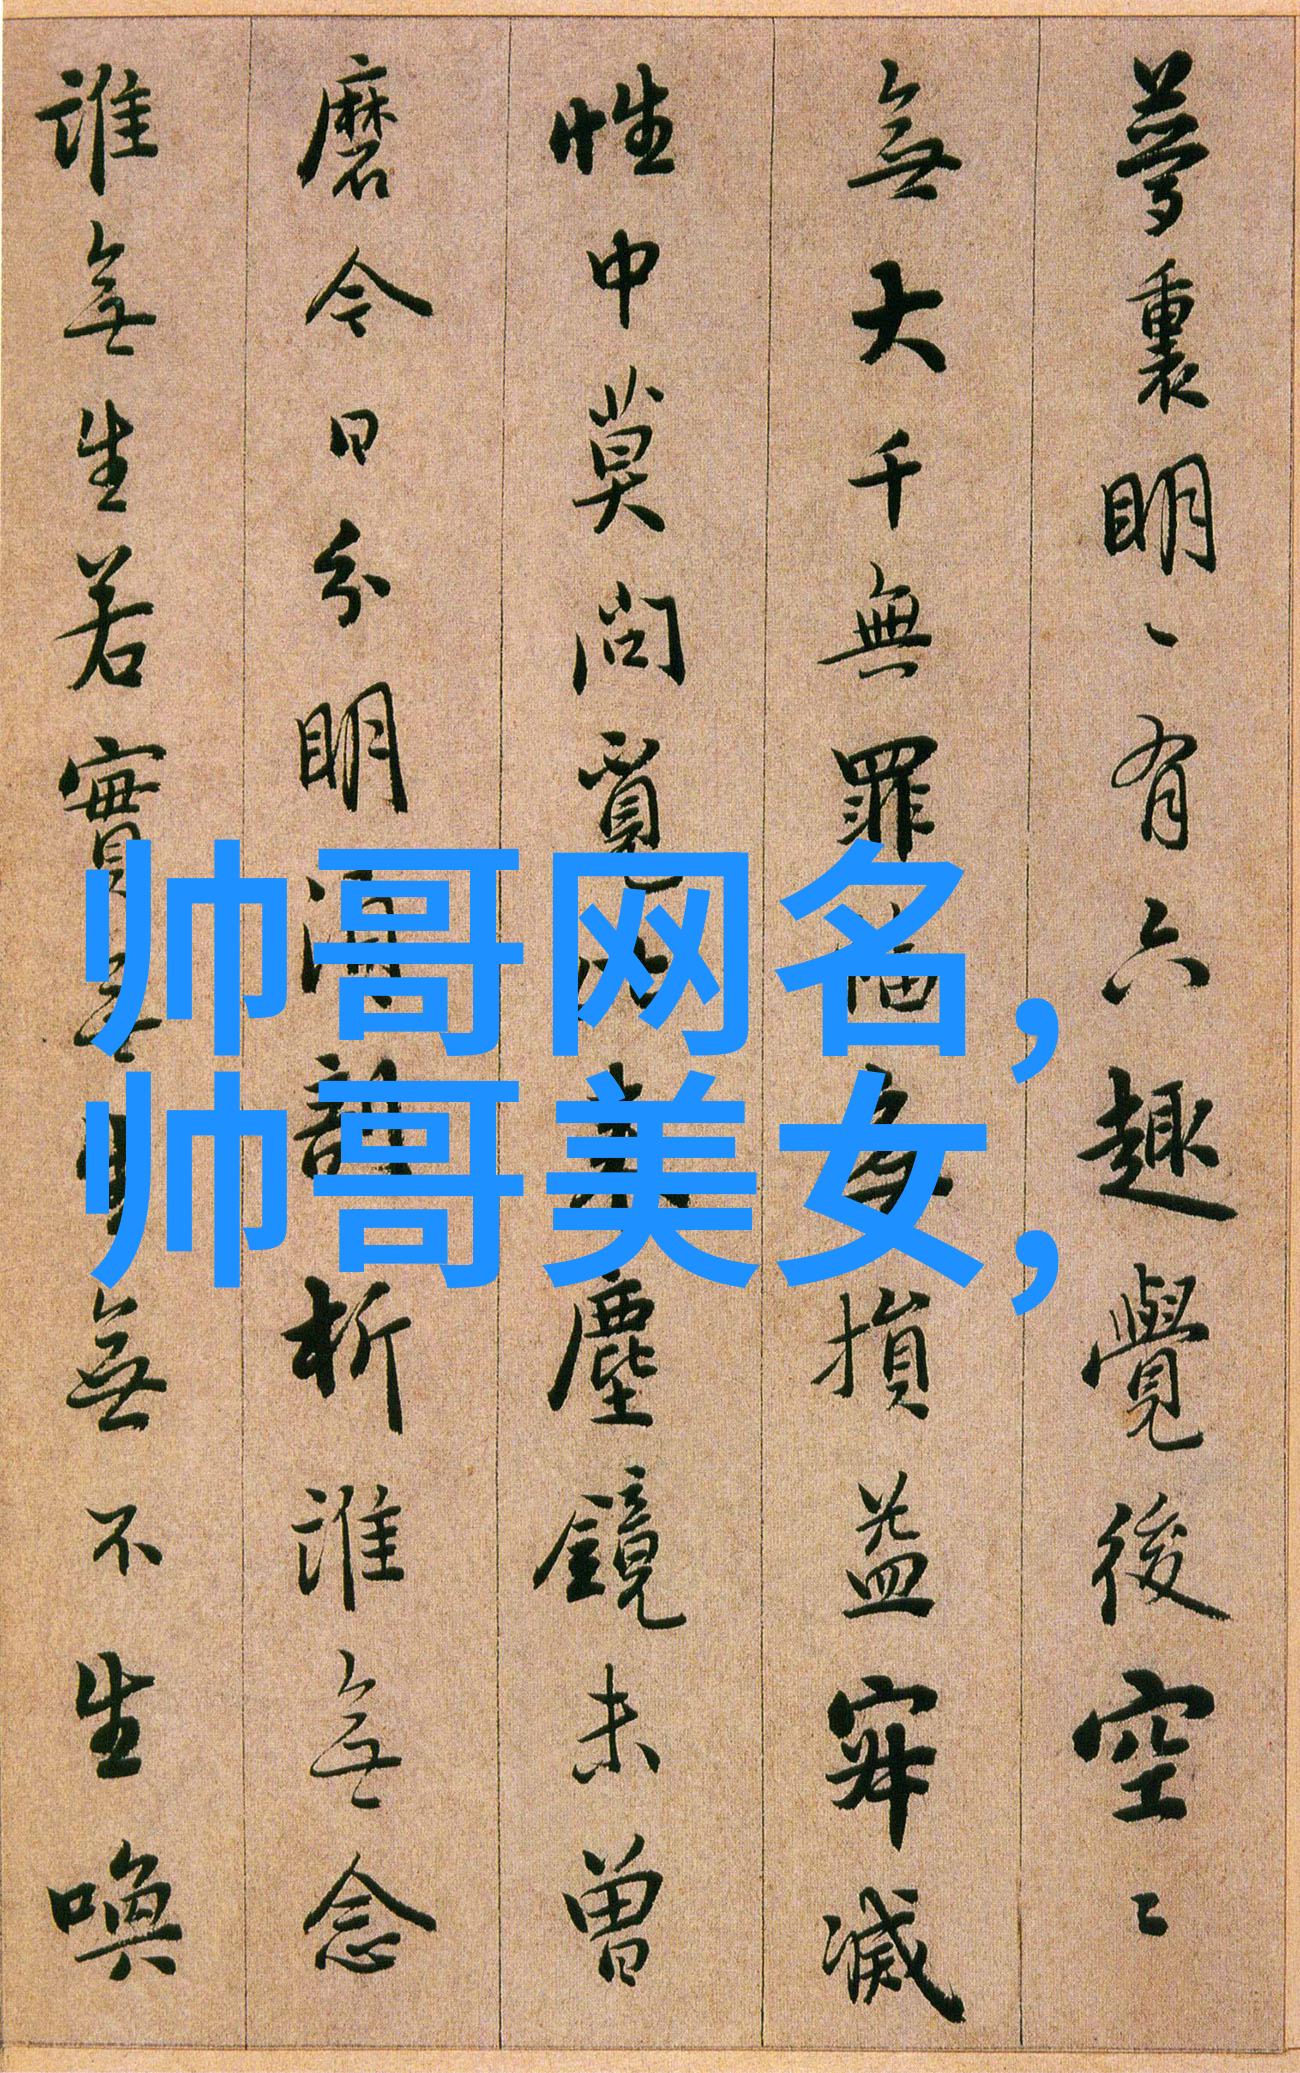 夢裏明〻有六趣覺後空〻
無大千無罪福無損益寂滅
性中莫問覓比來塵鏡未曾
磨今日分明須剖析誰無念
誰無生若實無生無不生喚
帅哥网名,
帅哥美女,